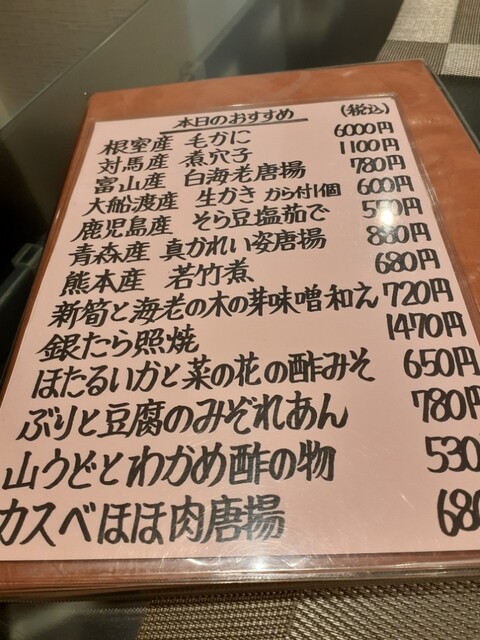 本日のおすすめ (税込)
根室産 毛かに 6000円
対馬産 煮穴子 1100円
富山産 白海老唐揚 780円
大船渡産 生かき から付1個 600円
鹿児島産 そら豆塩茹で 550円
青森産 真かれい姿唐揚 880円
熊本産 若竹煮 680円
新筍と海老の木の芽味噌和え 720円
銀たら照焼 1470円
ほたるいかと菜の花の酢みそ 650円
ぶりと豆腐のみぞれあん 780円
山うどとわかめ酢の物 530
カスベほほ肉唐揚 680